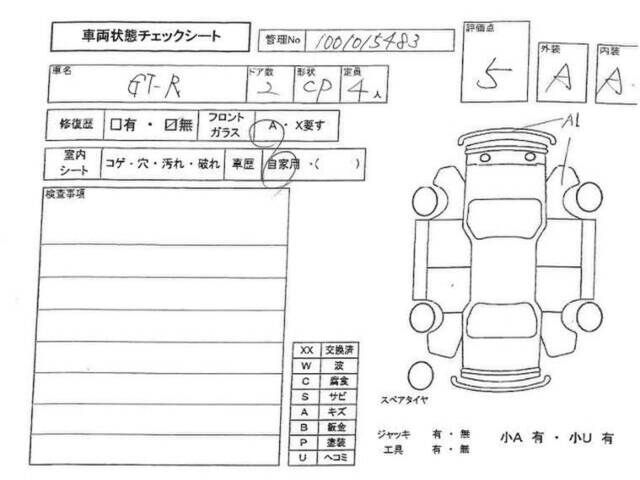 車両状態チェックシート
管理No 1001015483
評価点 5
外装 A
内装 A
車名 GT-R
ドア数 2
形状 CP
定員 4人
修復歴 □有・☑無
フロントガラス A・X要す
室内シート コゲ・穴・汚れ・破れ
車歴 自家用・( )
A1
検査事項
XX 交換済
W 波
C 腐食
S サビ
A キズ
B 鈑金
P 塗装
U ヘコミ
スペアタイヤ
ジャッキ 有・無
工具 有・無
小A 有・小U 有